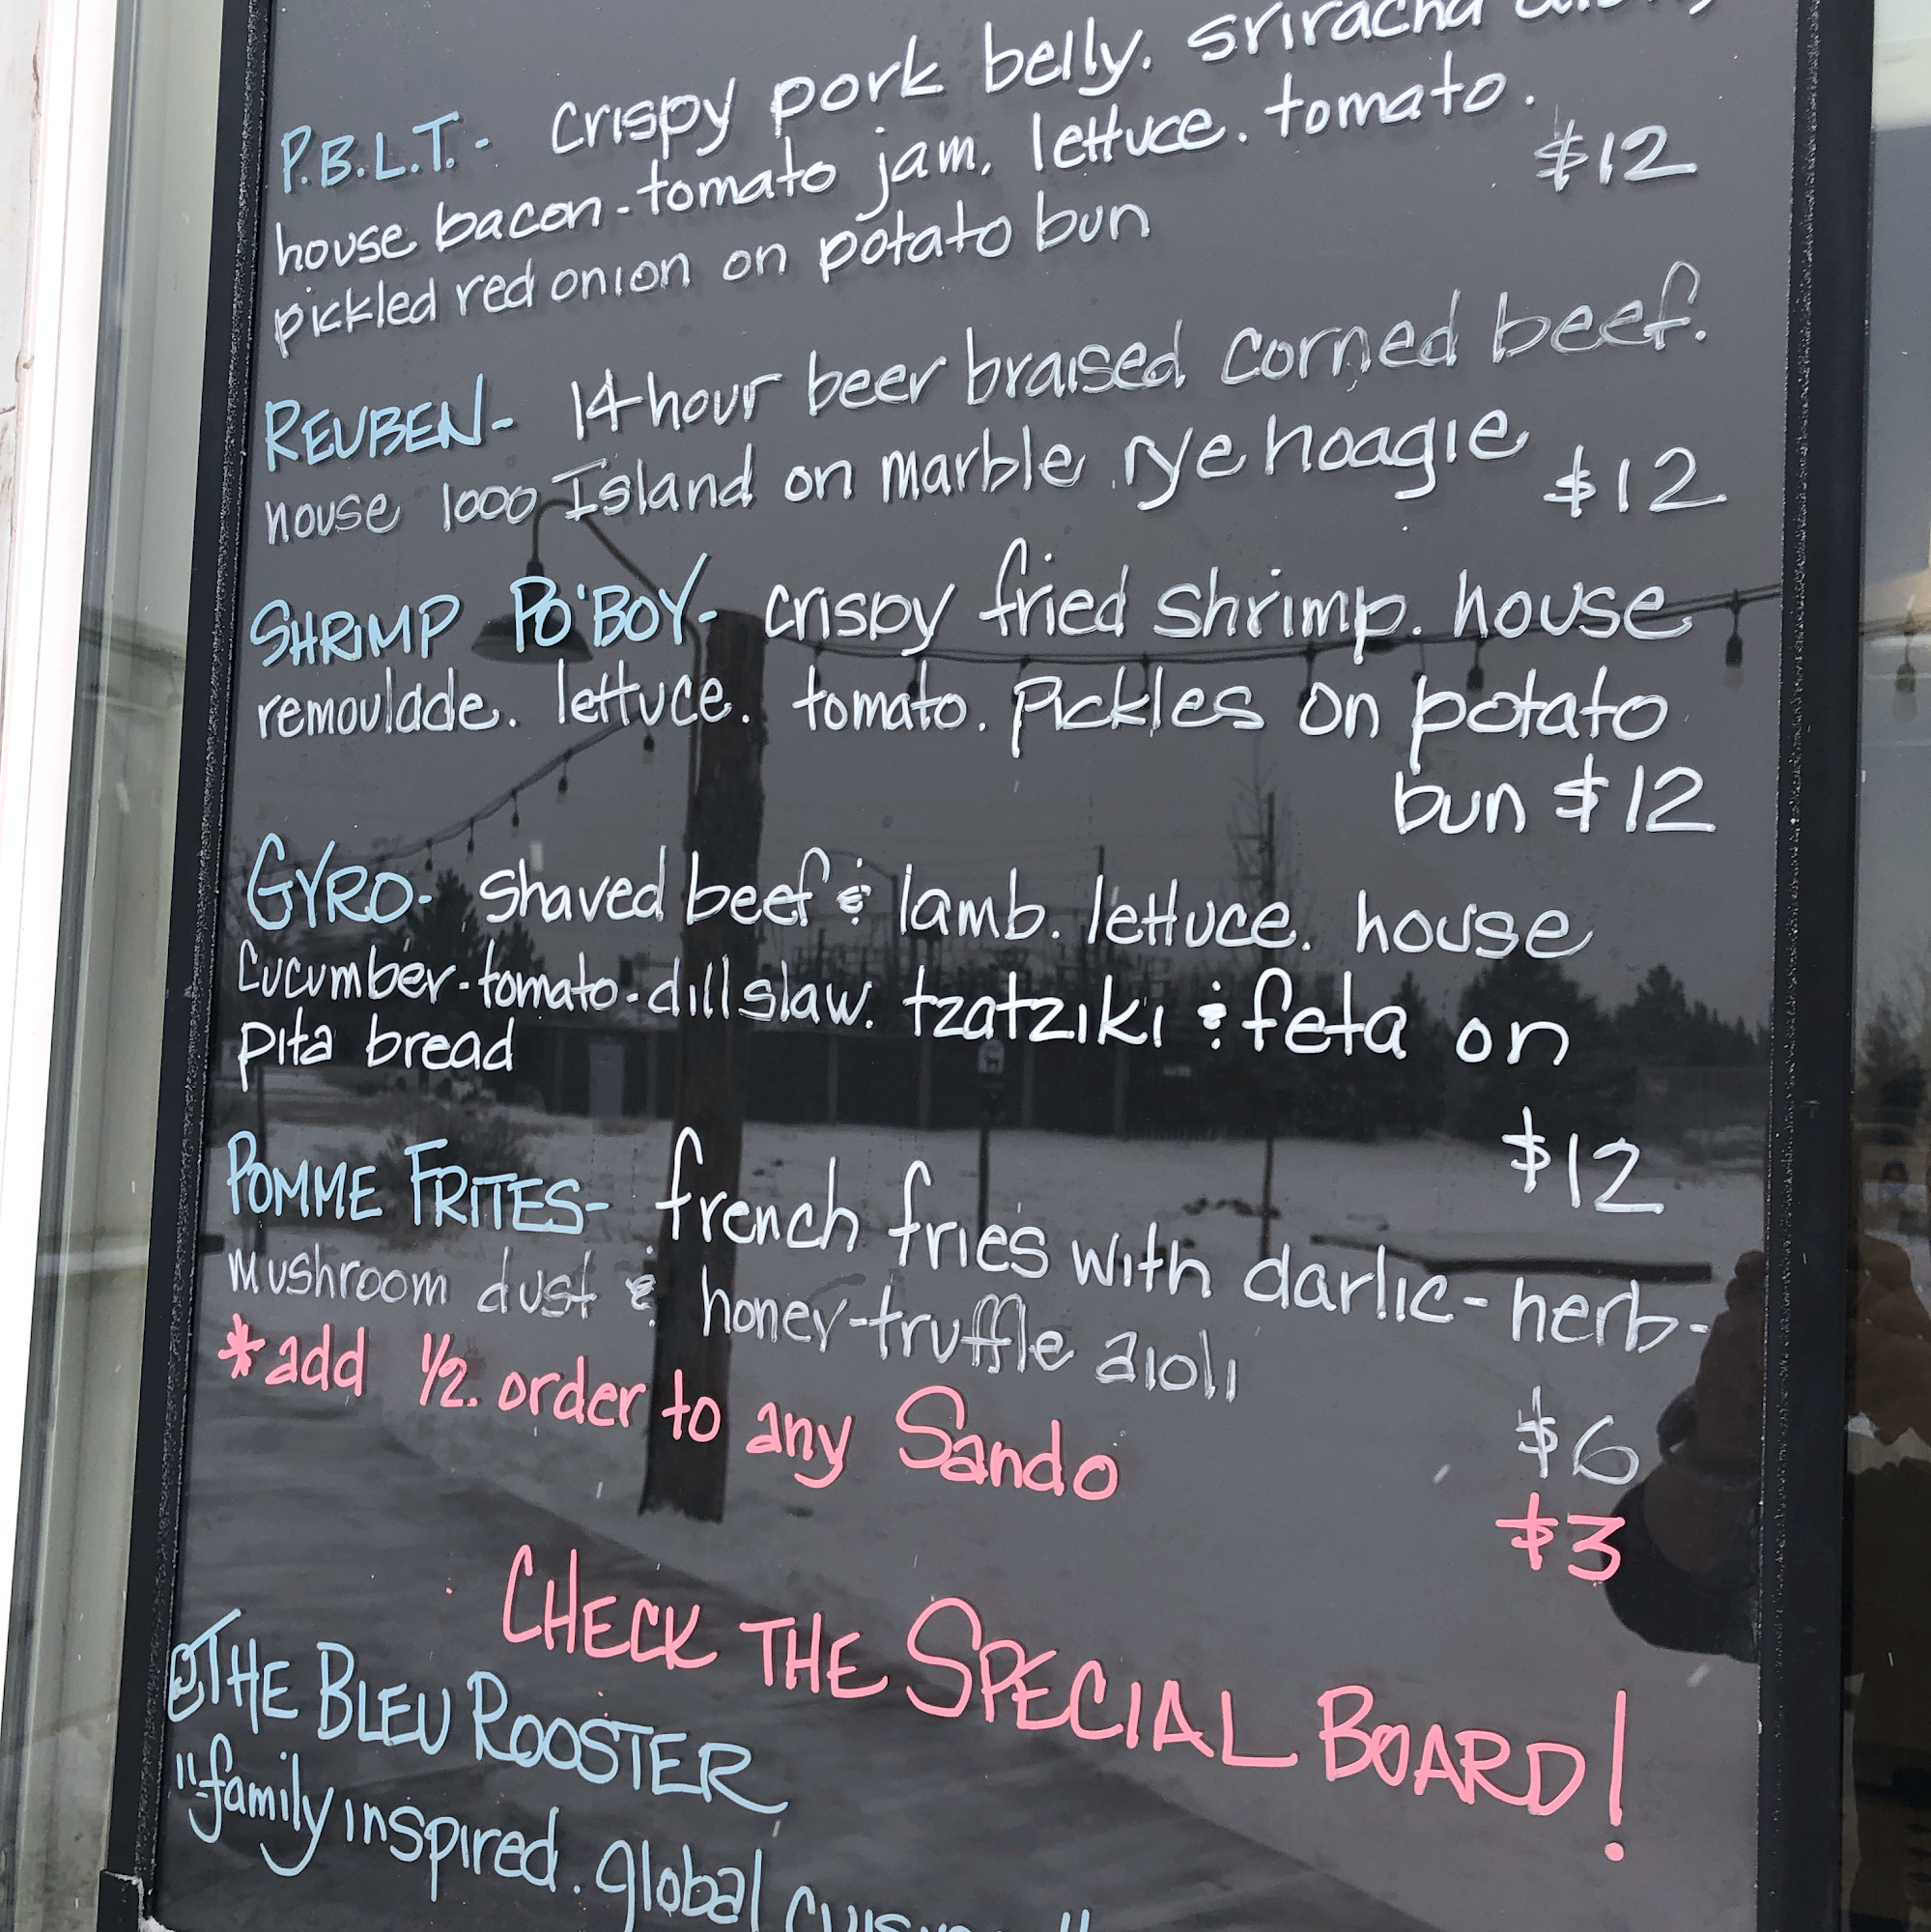 P.B.L.T.- crispy pork belly. sriracha
house bacon-tomato jam. lettuce. tomato.
pickled red onion on potato bun
$12
REUBEN- 14 hour beer braised corned beef.
house 1000 Island on marble rye hoagie
$12
SHRIMP PO'BOY- crispy fried shrimp. house
remoulade. lettuce. tomato. Pickles on potato
bun $12
GYRO- shaved beef & lamb. lettuce. house
cucumber-tomato-dill slaw. tzatziki & feta on
pita bread
$12
POMME FRITES- french fries with darlic-herb-
mushroom dust & honey-truffle aioli
$6
*add 1/2. order to any Sando
$3
CHECK THE SPECIAL BOARD!
@THE BLEU ROOSTER
"family inspired. global